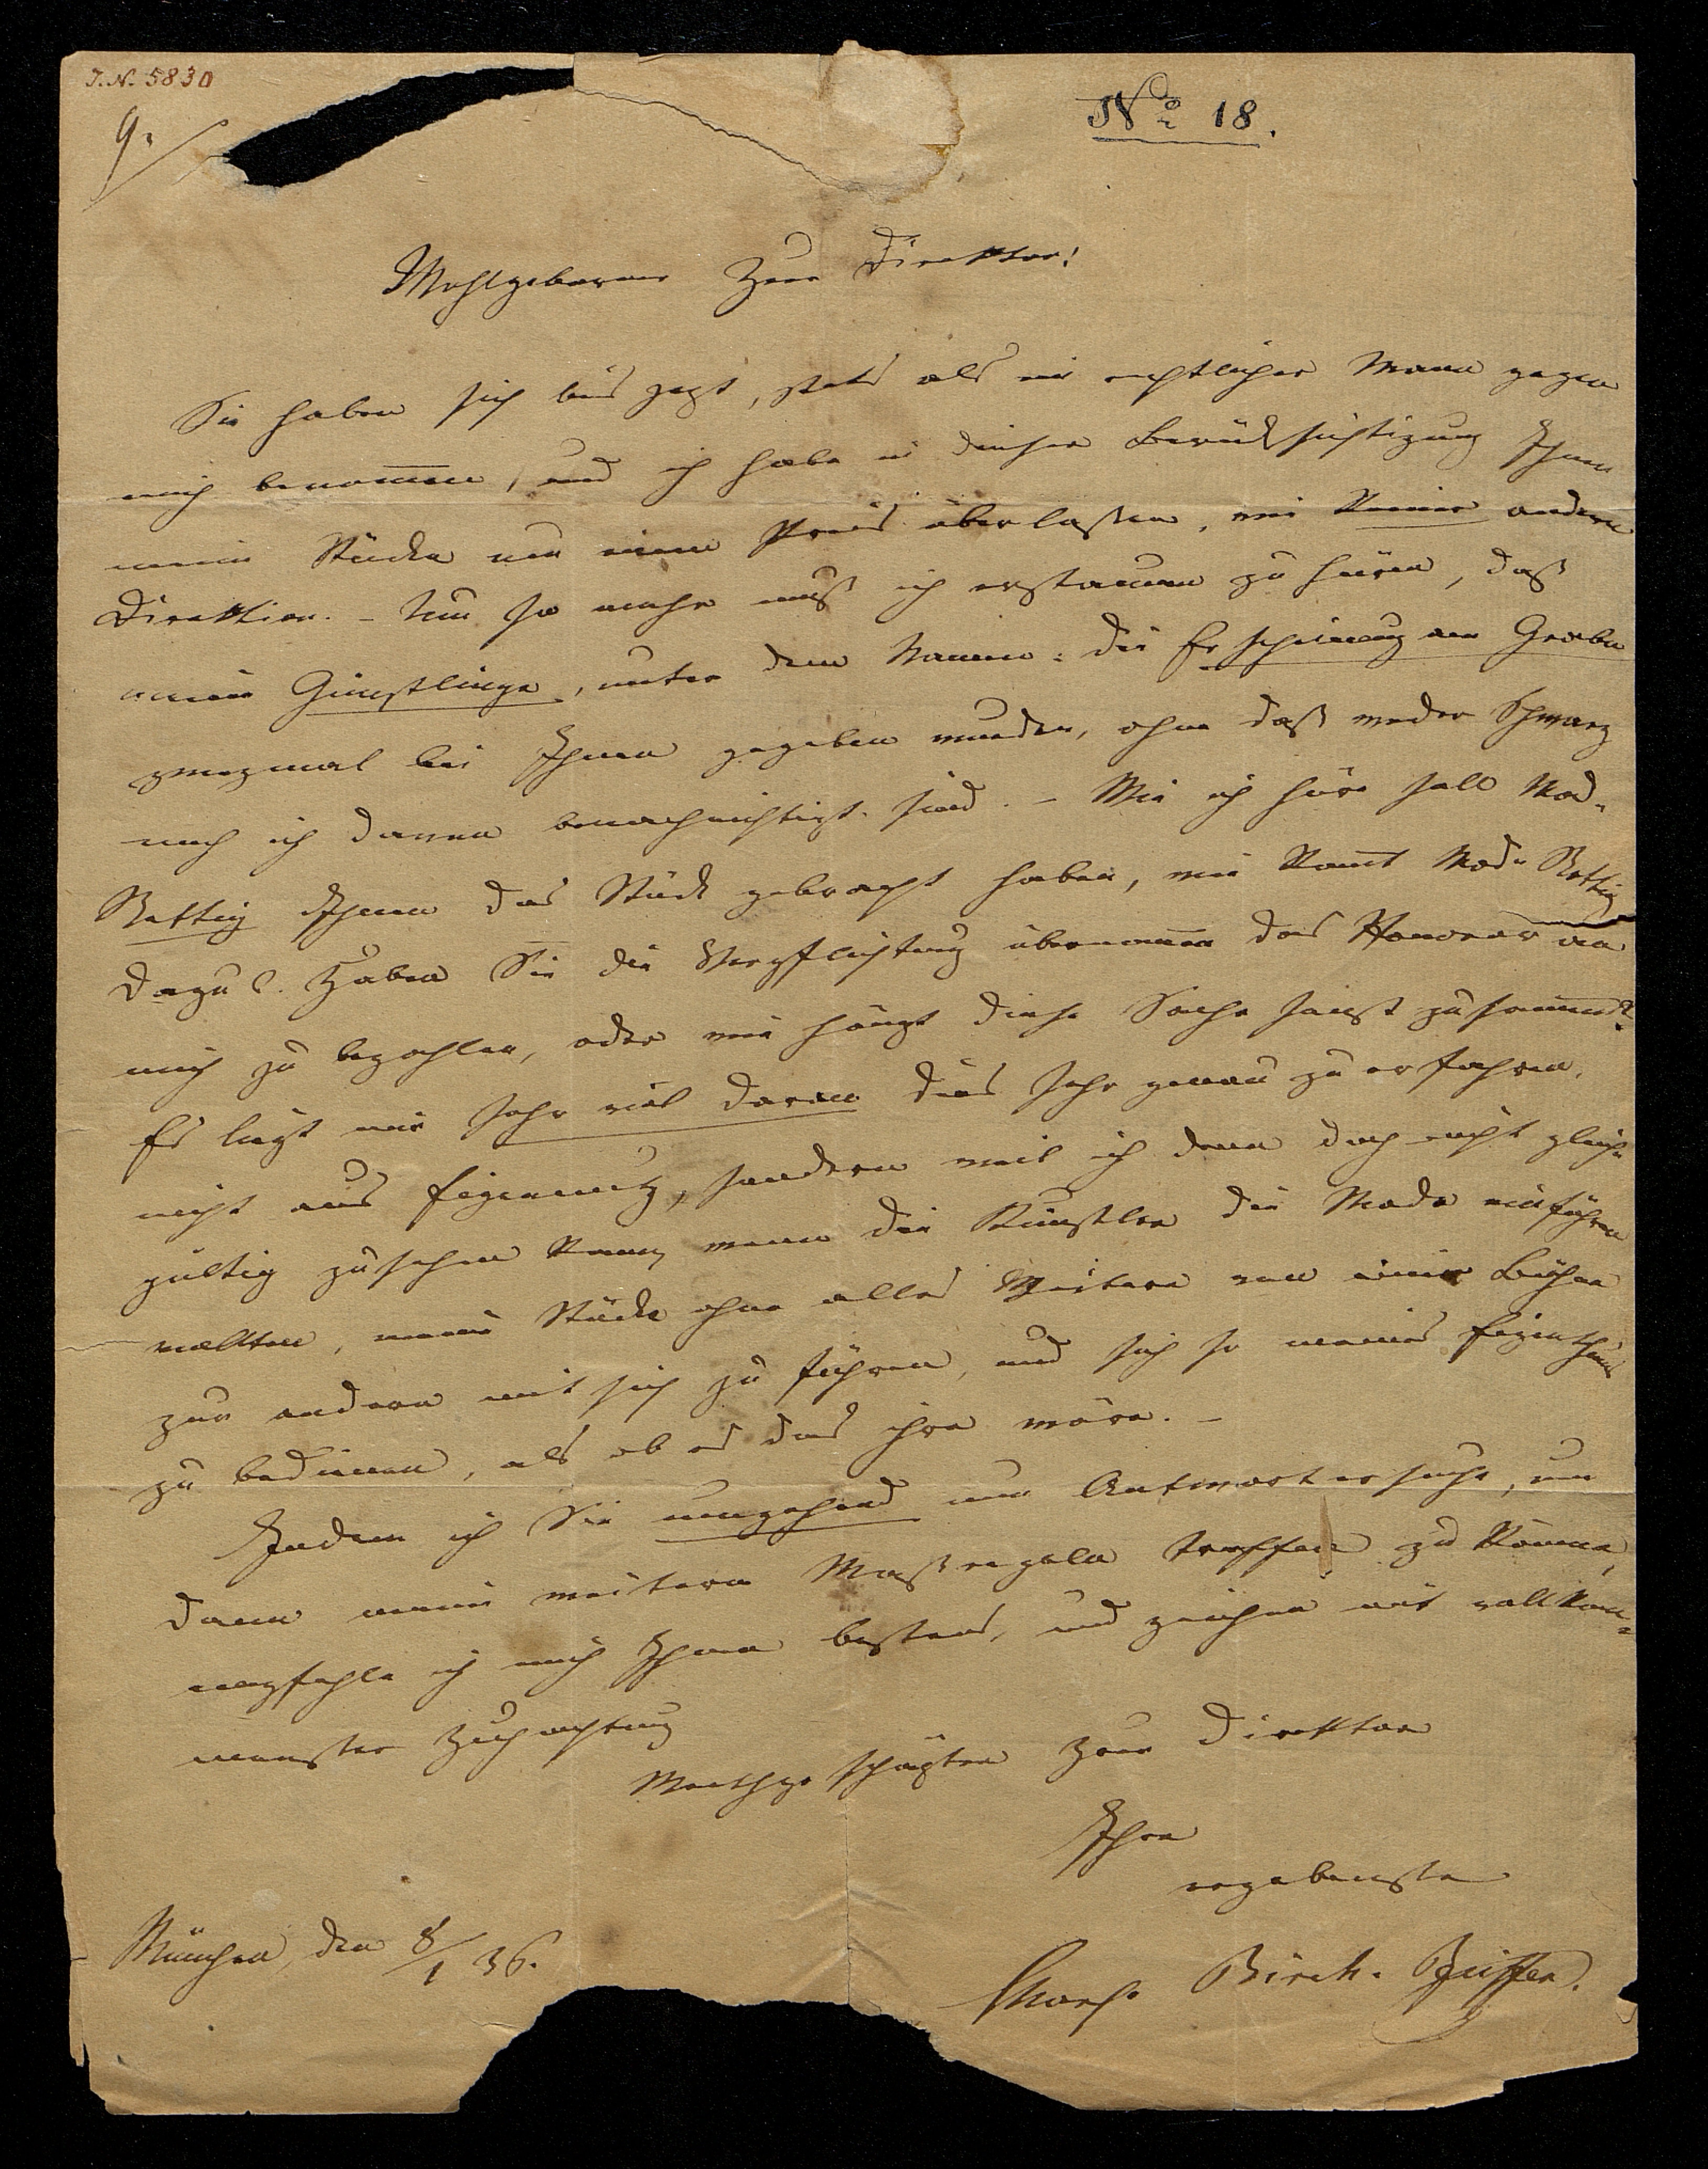 J.N. 5830
9.
No 18.
Wohlgeborner Herr Direktor!
Sie haben sich bis jezt, stets als ein rechtlicher Mann gegen
mich benommen, und ich habe in dieser Berücksichtigung Ihnen
meine Stücke um einen Preis überlassen, wie keiner andern
Direktion. – Um so mehr muß ich erstaunen zu hören, daß
meine Günstlinge, unter dem Namen: die Erscheinung am Grabe
zweymal bei Ihnen gegeben wurden, ohne daß weder Schwarz
noch ich davon benachrichtigt sind. – Wie ich höre soll Mad.
Rettig Ihnen das Stück gebracht haben, wie kömt Mad. Rettig
dazu?. Haben Sie die Verpflichtung übernommen das Honorar an
mich zu bezahlen, oder wie hängt diese Sache sonst zusammen?
Es liegt mir sehr viel daran dies sehr genau zu erfahren,
nicht aus Eigennutz, sondern weil ich denn doch nicht gleich-
gültig zusehen kann, wenn die Künstler die Mode einführen
wollten, meine Stücke ohne alles Weitere von einer Bühne
zur andern mit sich zu führen, und sich so meines Eigenthums
zu bedienen, als ob es das ihre wäre. –
Indem ich Sie umgehend um Antwort ersuche, um
dann meine weitern Maßregeln treffen zu können,
empfehle ich mich Ihnen bestens, und zeichne mit vollkom-
menster Hochachtung
Werthgeschäzter Herr Direktor
Ihre
ergebenste
München, den 8/1 36.
Charl. Birch-Pfeiffer.